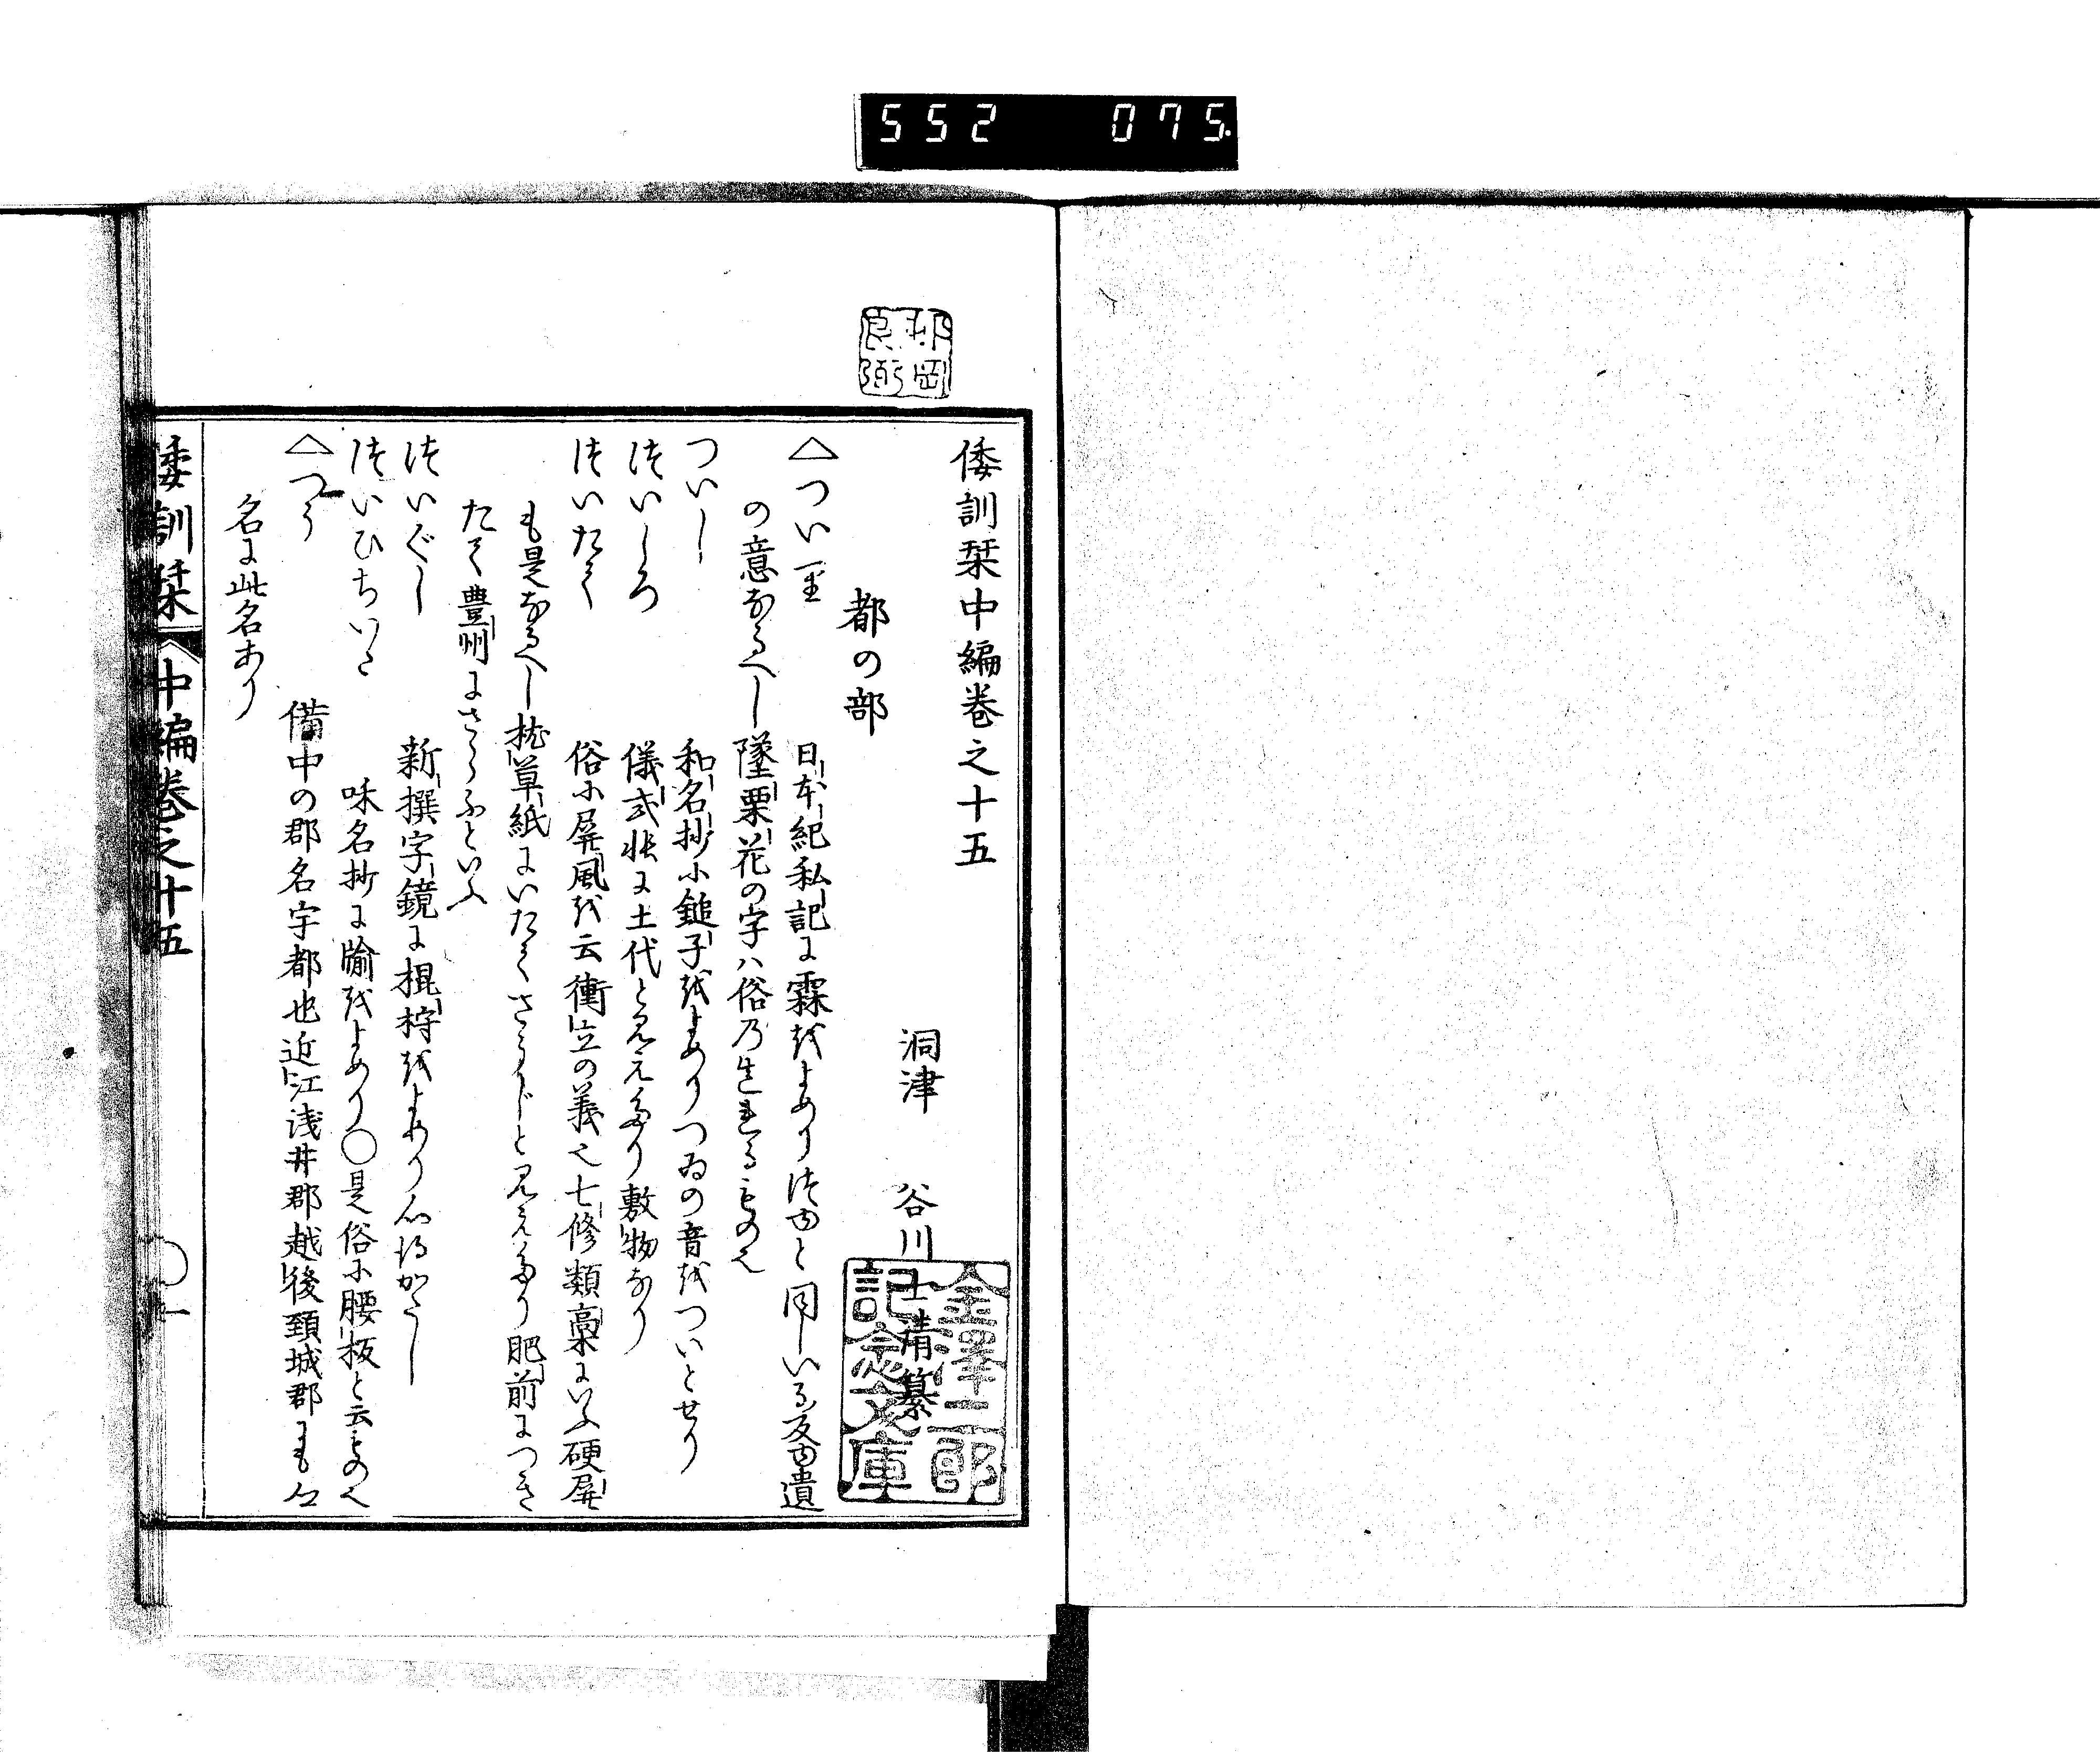 552 075
倭訓栞中編巻之十五
洞津 谷川士清纂
都の部
△つい 日本紀私記に霖をよめりつゆと同しいる反ゆ遺
の意なるへし墜栗花の字ハ俗乃生れるもの也
ついし 和名抄小鎚子をよめりつゐの音をついとせり
ついしろ 儀式帳に土代と見えたり敷物なり
ついたて 俗に屏風を云衝立の義也七修類稾にいふ硬屏
も是なるへし枕草紙にいたてさうじと見えたり肥前につき
たて豊州にさうふといふ
ついぐし 新撰字鏡に掍㭙をよめり心得かたし
ついひちいた 味名抄に牏をよめり○是俗に腰板と云もの也
△つう 備中の郡名宇都也近江浅井郡越後頚城郡にも公
名に此名あり
倭訓栞 中編巻之十五 ○一
金澤二郎
記念文庫